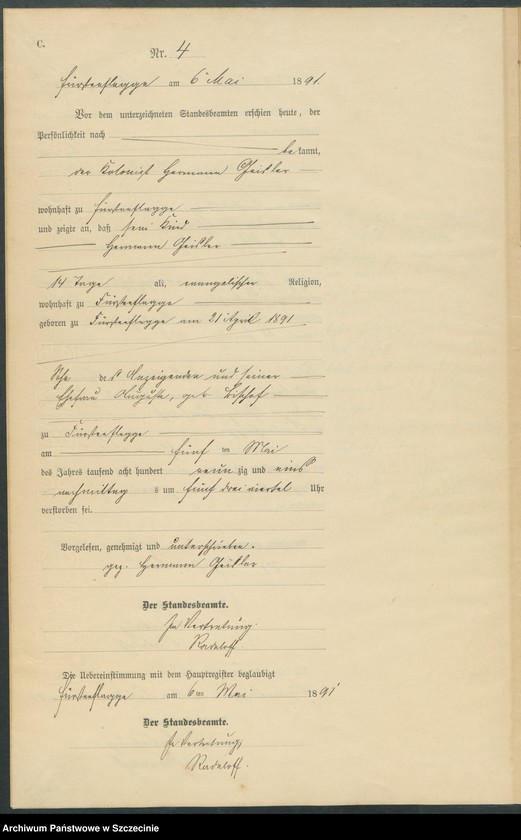 C.
Nr. 4
Fürstenflagge am 6 Mai 1891.
Vor dem unterzeichneten Standesbeamten erschien heute, der
Persönlichkeit nach
bekannt,
der Kolonist Hermann Geißler
wohnhaft zu Fürstenflagge
und zeigte an, daß sein Kind
Hermann Geißler
14 Tage alt, evangelischer Religion,
wohnhaft zu Fürstenflagge
geboren zu Fürstenflagge am 21 April 1891
Sohn des Anzeigenden und seiner
Ehefrau Auguste, geb
zu Fürstenflagge
am fünf ten Mai
des Jahres tausend acht hundert neun zig und eins
nachmittag s um fünf drei viertel Uhr
verstorben sei.
Vorgelesen, genehmigt und unterschrieben.
gez. Hermann Geißler
Der Standesbeamte.
In Vertretung.
Radeloff.
Die Uebereinstimmung mit dem Hauptregister beglaubigt
Fürstenflagge am 6ten Mai 1891
Der Standesbeamte.
In Vertretung,
Radeloff.
Archiwum Państwowe w Szczecinie